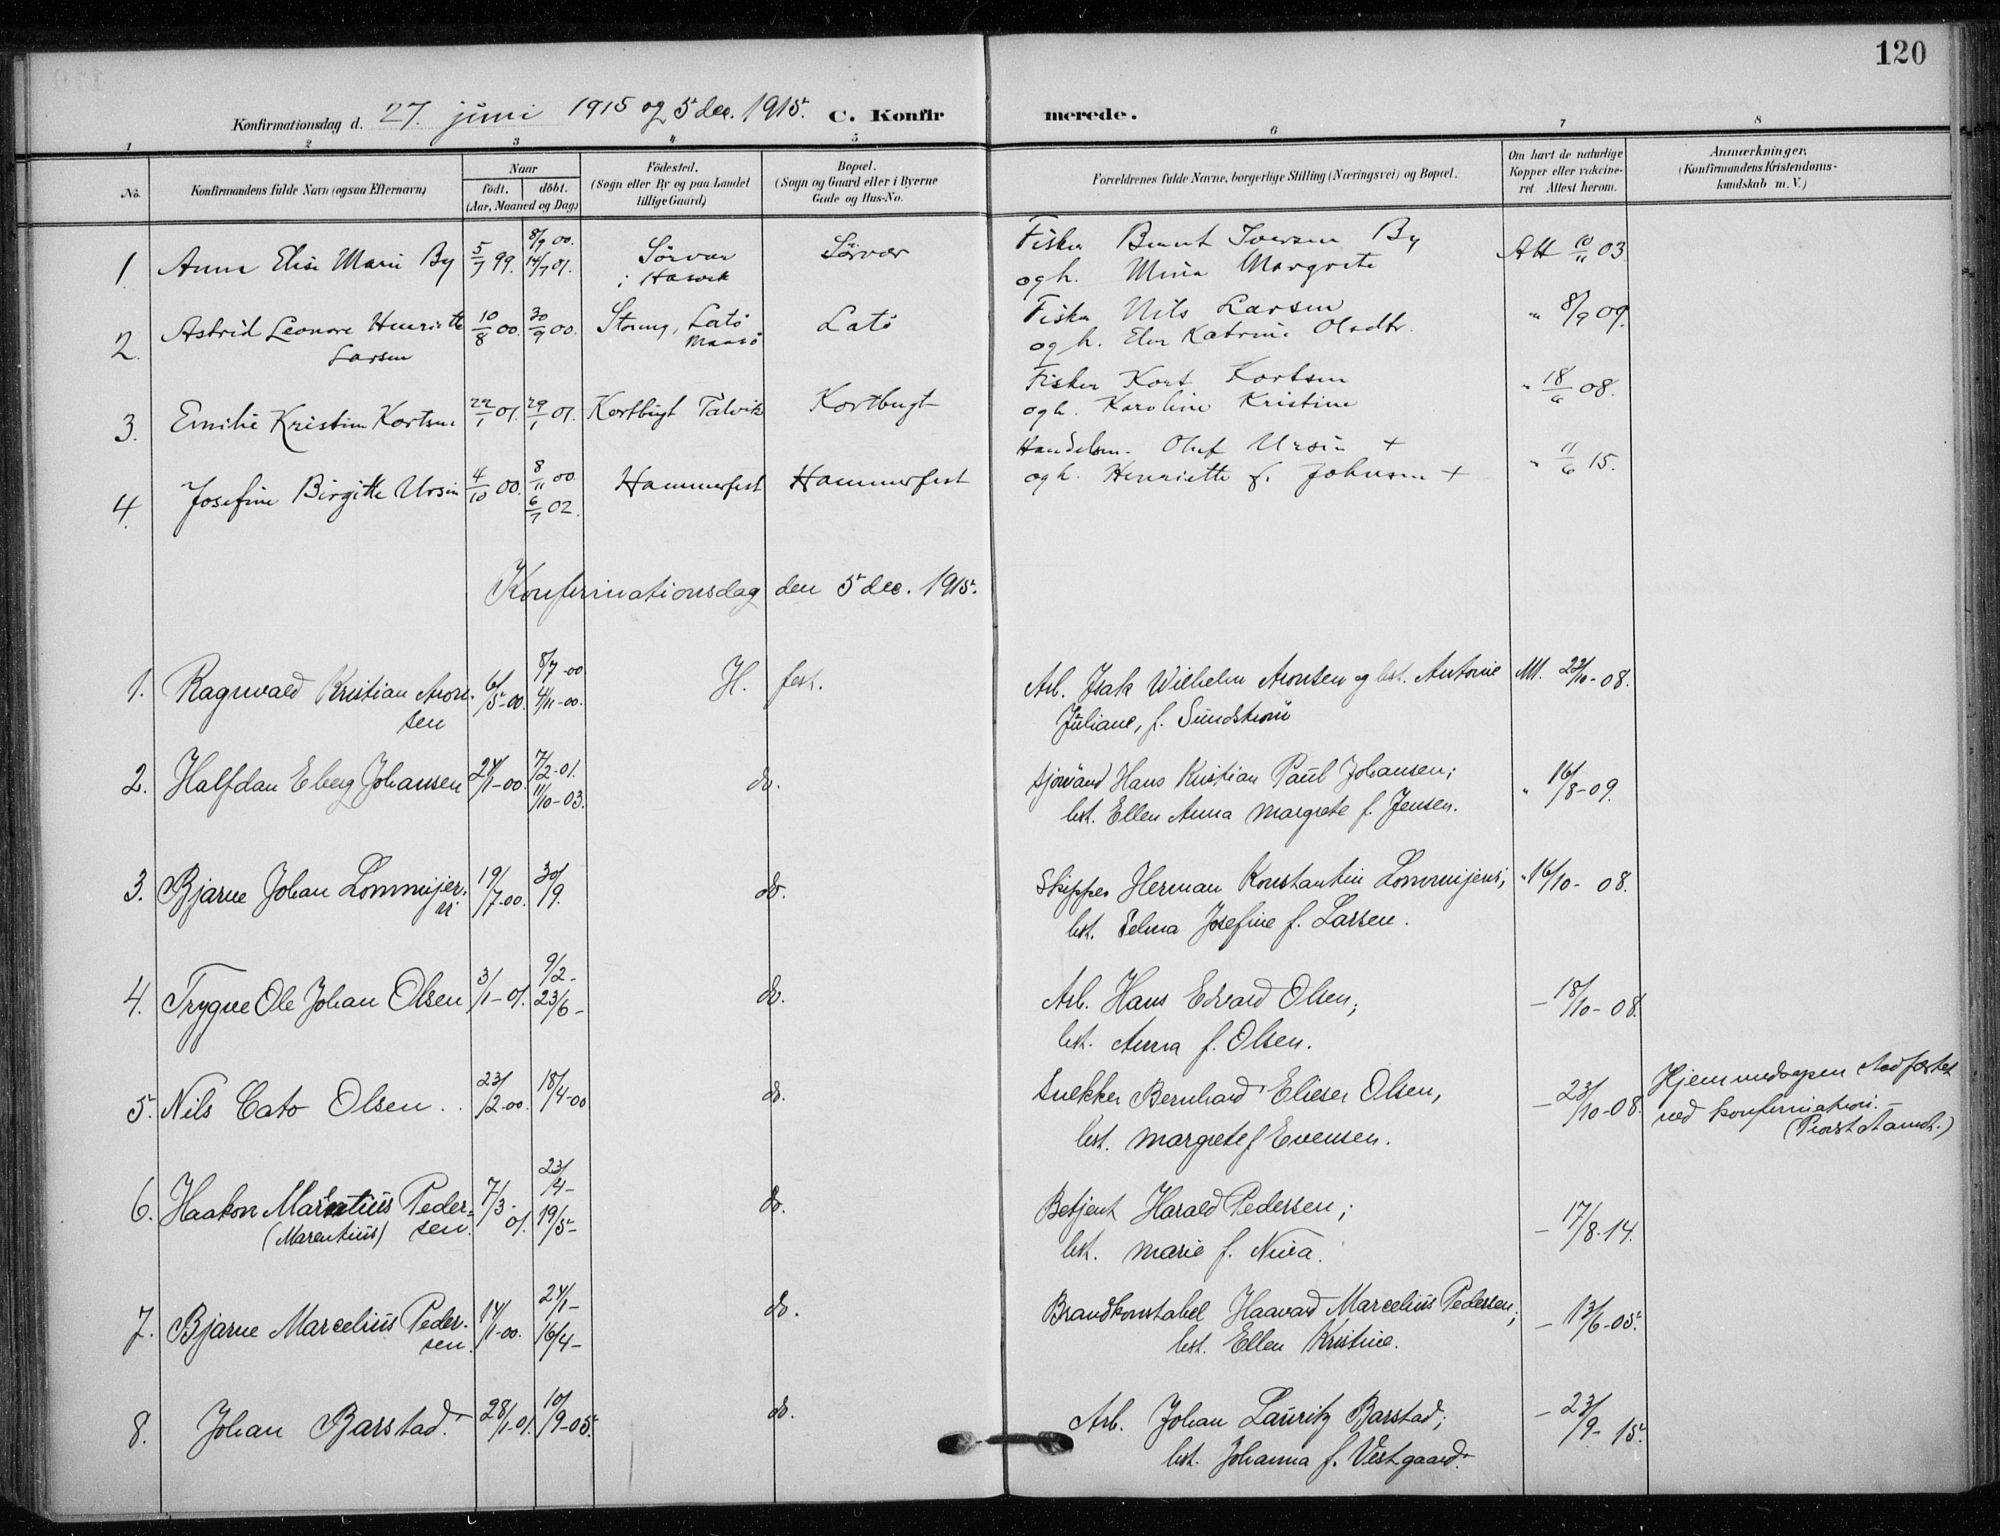 120
Konfirmationsdag d. 27. juni 1915 og 5 dec. 1915. C. Konfirmerede.
1 2 3 4 5 6 7 8
No. Konfirmandens fulde Navn (ogsaa Efternavn) Naar födt. döbt. (Aar, Maaned og Dag) Födested. (Sogn eller By og paa Landet tillige Gaard) Bopæl. (Sogn og Gaard eller i Byerne Gade og Hus-No. Forældrenes fulde Navne, borgerlige Stilling (Næringsvei) og Bopæl. Om havt de naturlige Kopper eller vakcineret. Attest herom. Anmærkninger. (Konfirmandens Kristendomskundskab m. V.)
1. Anna Elise Marie By 5/7 99. 8/9 00. 14/7 01. Sörvær i Hasvik Sörvær Fisker Bernt Iversen By Att 10/11 03.
og h. Mina Margrete
2. Astrid Leonore Henriette Larsen 10/8 00. 30/9 00. Latö Maasö Latö Fisker Nils Larsen " 8/9 09.
og h. Elen Katrine Olsdtr.
3. Emilie Kristine Kortsen 22/1 01. 29/1 01. Kortbugt Talvik Kortbugt Fisker Kort Kortsen " 18/6 08.
og h. Karoline Kristine
4. Josefine Birgitte Ursin 4/10 00. 8/11 00 6/7 02. Hammerfest Hammerfest Handelsm. Oluf Ursin + " 11/6 15.
og h. Henriette f. Johnsen +
Konfirmationsdag den 5 dec. 1915.
1. Ragnvald Kristian Aronsen 6/5-00. 8/7-00 4/11-00. H.fest. Arb. Isak Wilhelm Aronsen og hst. Antonie Att. 22/10-08.
Juliane, f. Sundström
2. Halfdan Eberg Johansen 24/1-00. 7/2-01. 11/10-03. do. Sjömand Hans Kristian Paul Johansen; " 16/8-09.
hst. Ellen Anna Margrete f. Jensen.
3. Bjarne Johan Lommijervi 19/7-00. 30/9. do. Skipper Herman Konstantin Lommijervi; " 16/10-08.
hst. Selma Josefine f. Larsen.
4. Trygve Ole Johan Olsen 3/1-01. 9/2- 23/6- do. Arb. Hans Edvard Olsen; - 18/10-08.
hst. Anna f. Olsen.
5. Nils Cato Olsen. 23/2-00. 18/4-00 do. Snekker Bernhard Elieser Olsen, - 23/10-08. Hjemmedaapen stadfæstet
hst. Margrete f Evensen. ved konfirmation.
6. Haakon Marentius Pedersen. (Marentius) 7/3-01. 23/4- 19/5- do. Betjent Harald Pedersen; - 17/8-14.
hst. Marie f. Niva.
7. Bjarne Marcelius Pedersen. 14/1-00. 24/1- 16/4- do. Brandkonstabel Haavard Marcelius Pedersen; - 13/6-05.
hst. Ellen Kristine.
8. Johan Barstad. 28/1-01. 10/9-05. do. Arb. Johan Lauritz Barstad; - 23/9-15.
hst. Johanna f. Vestgaard.